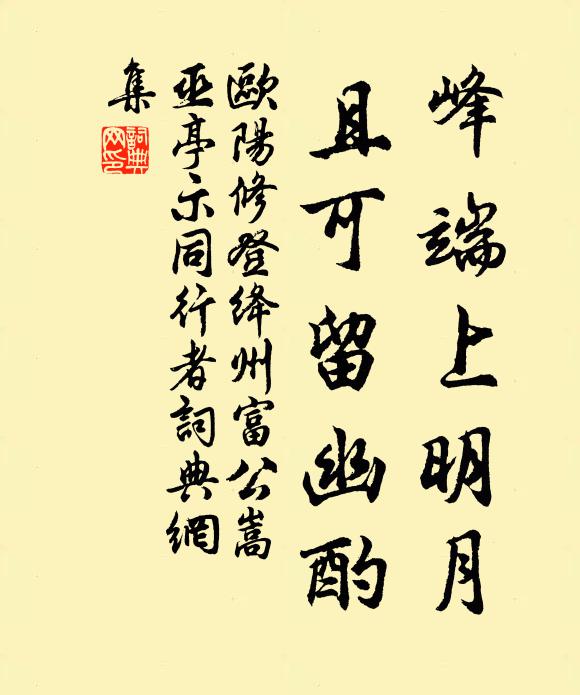 峰端上明月
且可留幽酌
歐陽修登絳州富公嵩
巫亭示同行者詞典網
集
詞典
网印